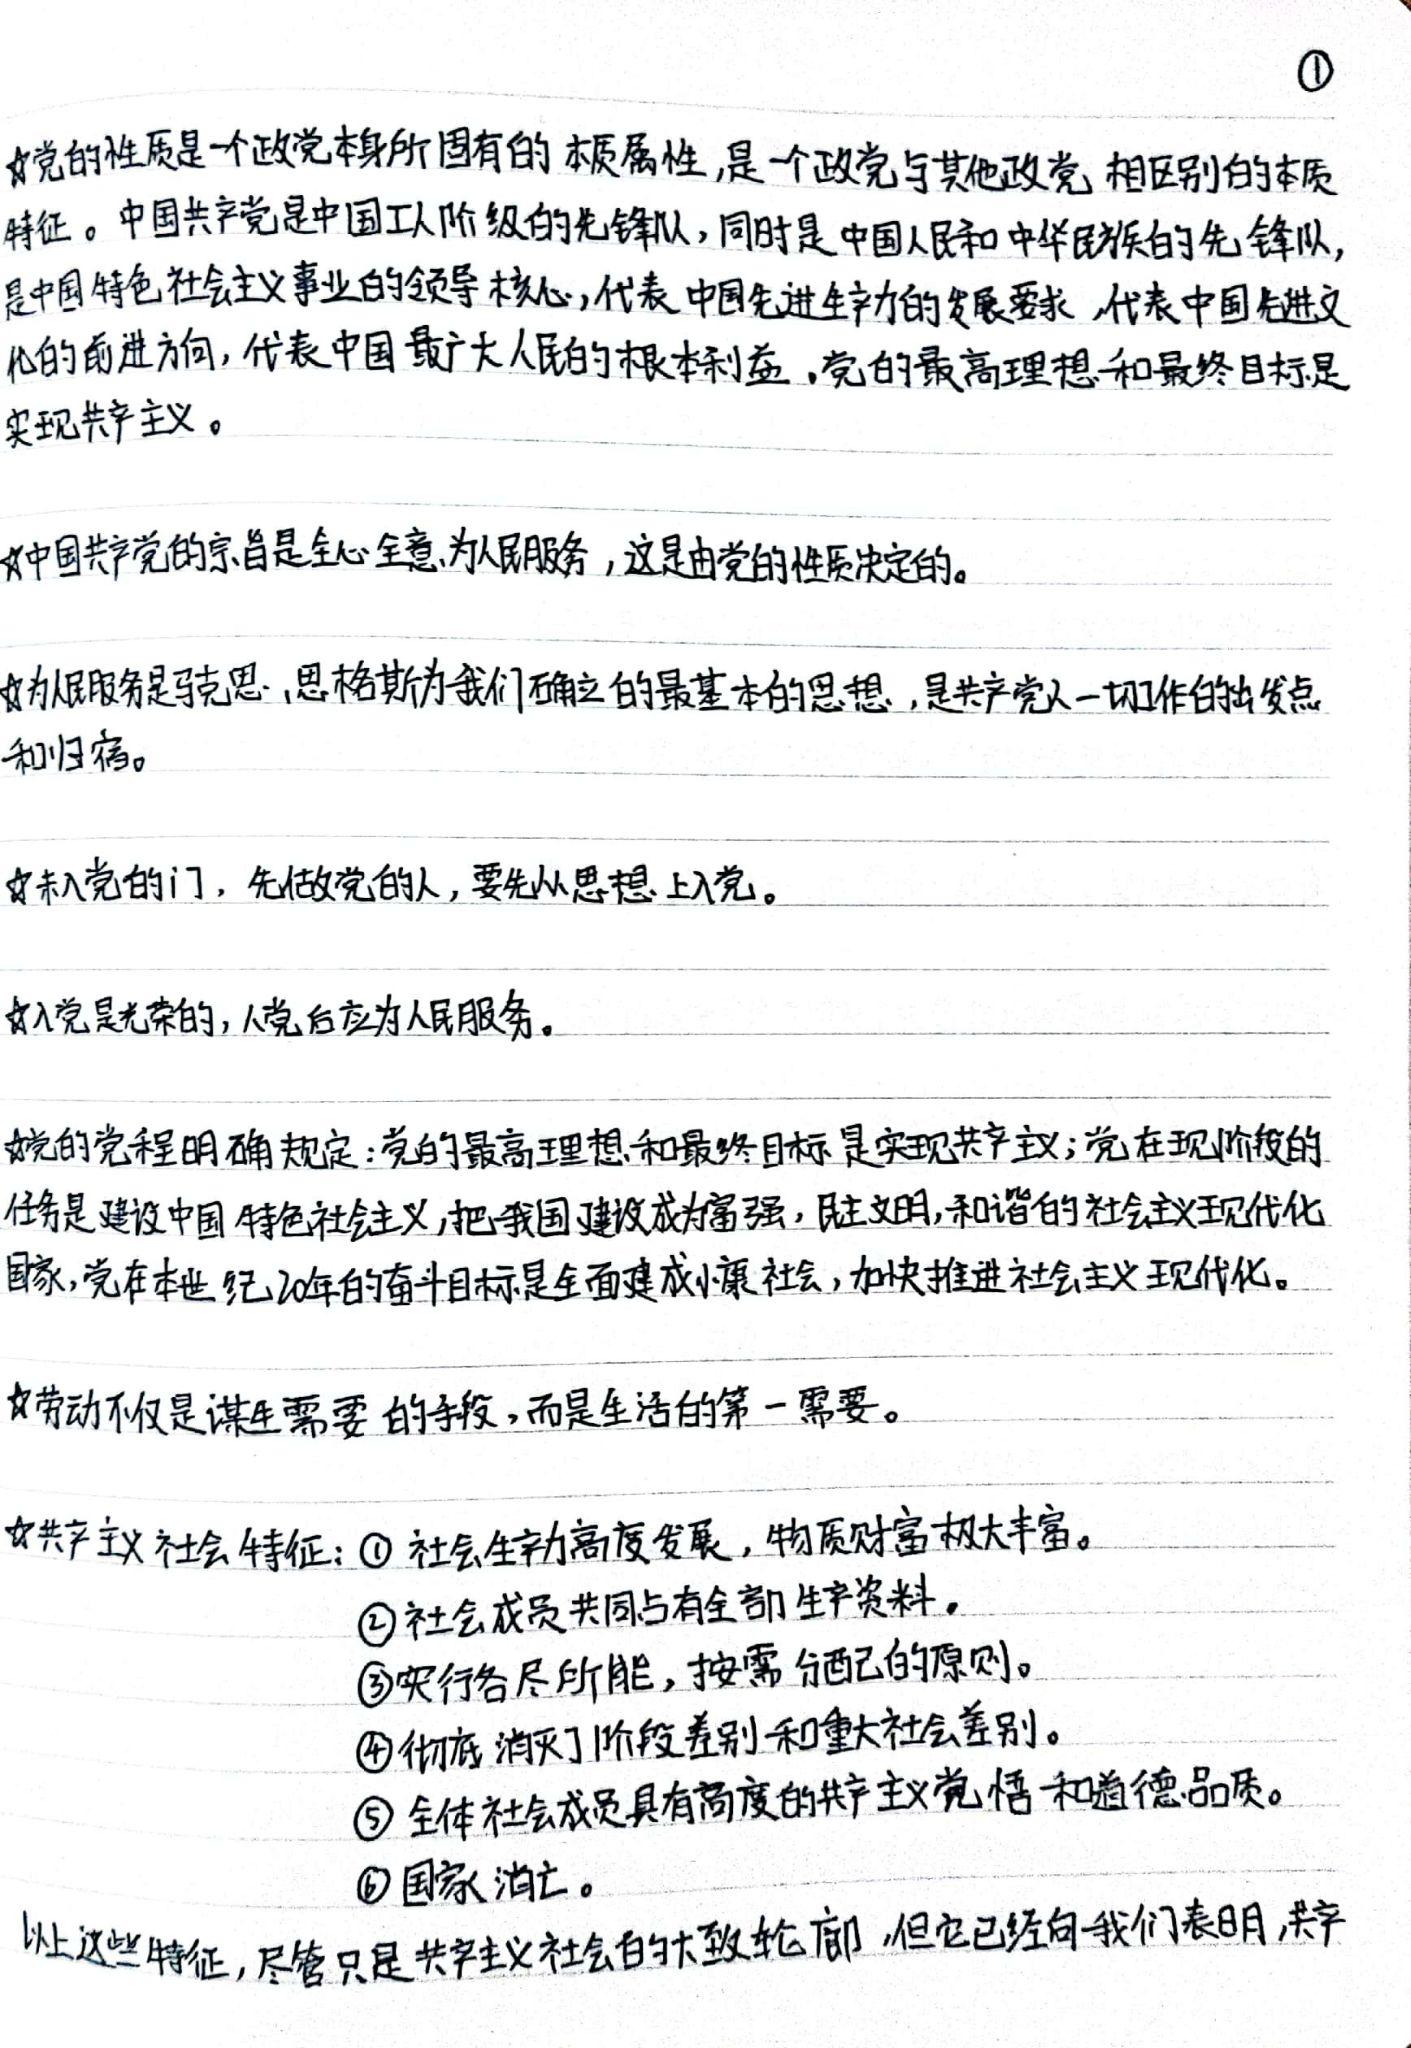 ①
☆党的性质是一个政党本身所固有的本质属性,是一个政党与其他政党相区别的本质
特征。中国共产党是中国工人阶级的先锋队,同时是中国人民和中华民族的先锋队,
是中国特色社会主义事业的领导核心,代表中国先进生产力的发展要求,代表中国先进文
化的前进方向,代表中国最广大人民的根本利益。党的最高理想和最终目标是
实现共产主义。
☆中国共产党的宗旨是全心全意为人民服务,这是由党的性质决定的。
☆为人民服务是马克思、恩格斯为我们确立的最基本的思想,是共产党人一切工作的出发点
和归宿。
☆未入党的门,先做党的人,要先从思想上入党。
☆入党是光荣的,入党后应为人民服务。
☆党的党程明确规定:党的最高理想和最终目标是实现共产主义;党在现阶段的
任务是建设中国特色社会主义,把我国建设成为富强,民主文明,和谐的社会主义现代化
国家,党在本世纪20年的奋斗目标是全面建成小康社会,加快推进社会主义现代化。
☆劳动不仅是谋生需要的手段,而是生活的第一需要。
☆共产主义社会特征:① 社会生产力高度发展,物质财富极大丰富。
②社会成员共同占有全部生产资料。
③实行各尽所能,按需分配的原则。
④彻底消灭了阶段差别和重大社会差别。
⑤全体社会成员具有高度的共产主义觉悟和道德品质。
⑥国家消亡。
以上这些特征,尽管只是共产主义社会的大致轮廓,但它已经向我们表明,共产